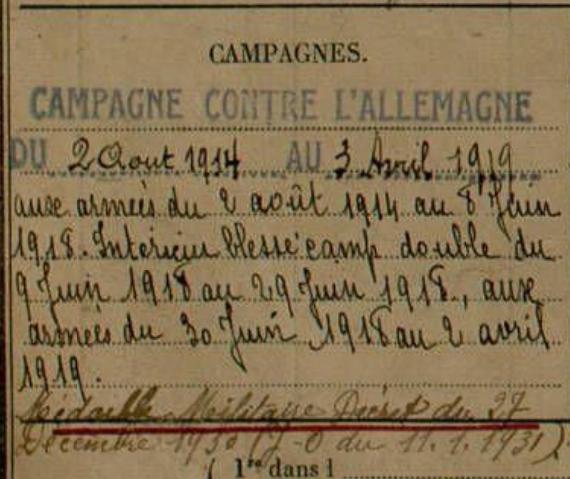 CAMPAGNES.
CAMPAGNE CONTRE L'ALLEMAGNE
DU 2 Aout 1914 AU 3 Avril 1919
aux armées du 2 août 1914 au 8 Juin
1918. Intérieur blessé camp double du
9 Juin 1918 au 29 Juin 1918, aux
armées du 30 Juin 1918 au 2 avril
1919.
Médaille Militaire Décret du 27
Décembre 1930 (J-O du 11.1.1931)
( 1re dans l